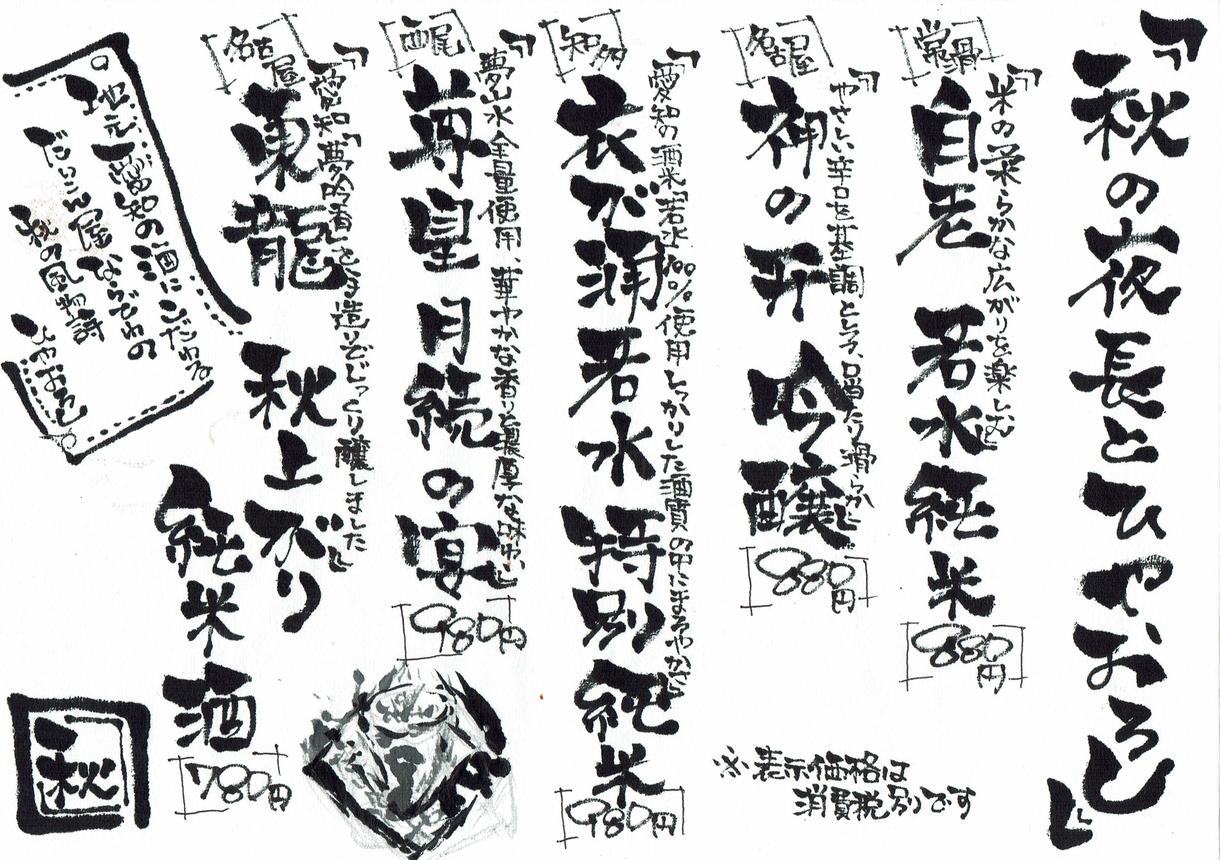 『秋の夜長とひやおろし』
常滑
『米の柔らかな広がりを楽しむ』
白老 若水純米
880円
名古屋
『やさしい辛口を基調とし、口当たり滑らか』
神の井 吟醸
880円
知多
『愛知の酒米「若水」100%使用しっかりした酒質の中にまろやかさ』
衣が浦若水 特別純米
980円
西尾
『夢山水全量使用、華やかな香りと濃厚な味わい』
尊皇 月続の宴
980円
名古屋
『愛知「夢吟香」を造りでじっくり醸しました』
東龍 秋上がり
純米酒
780円
地元、愛知の酒にこだわる
だいこん屋ならではの
秋の風物詩
ひやおろし
秋
※表示価格は
消費税別です